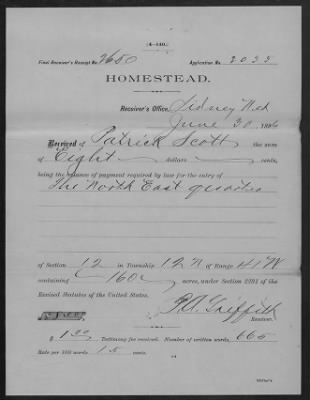 (4-140.)
Final Receiver's Receipt No. 2650 Application No. 2035
HOMESTEAD.
Receiver's Office, Sidney Neb
June 30, 1896
Received of Patrick Scott the sum
of Eight dollars cents,
being the balance of payment required by law for the entry of
The North East quarter
of Section 12 in Township 12 N of Range 41 W
containing 160 acres, under Section 2291 of the
Revised Statutes of the United States.
P.A. Griffith
Receiver.
$8.00
$1.00 Testimony fee received. Number of written words, 665
Rate per 100 words 15 cents.